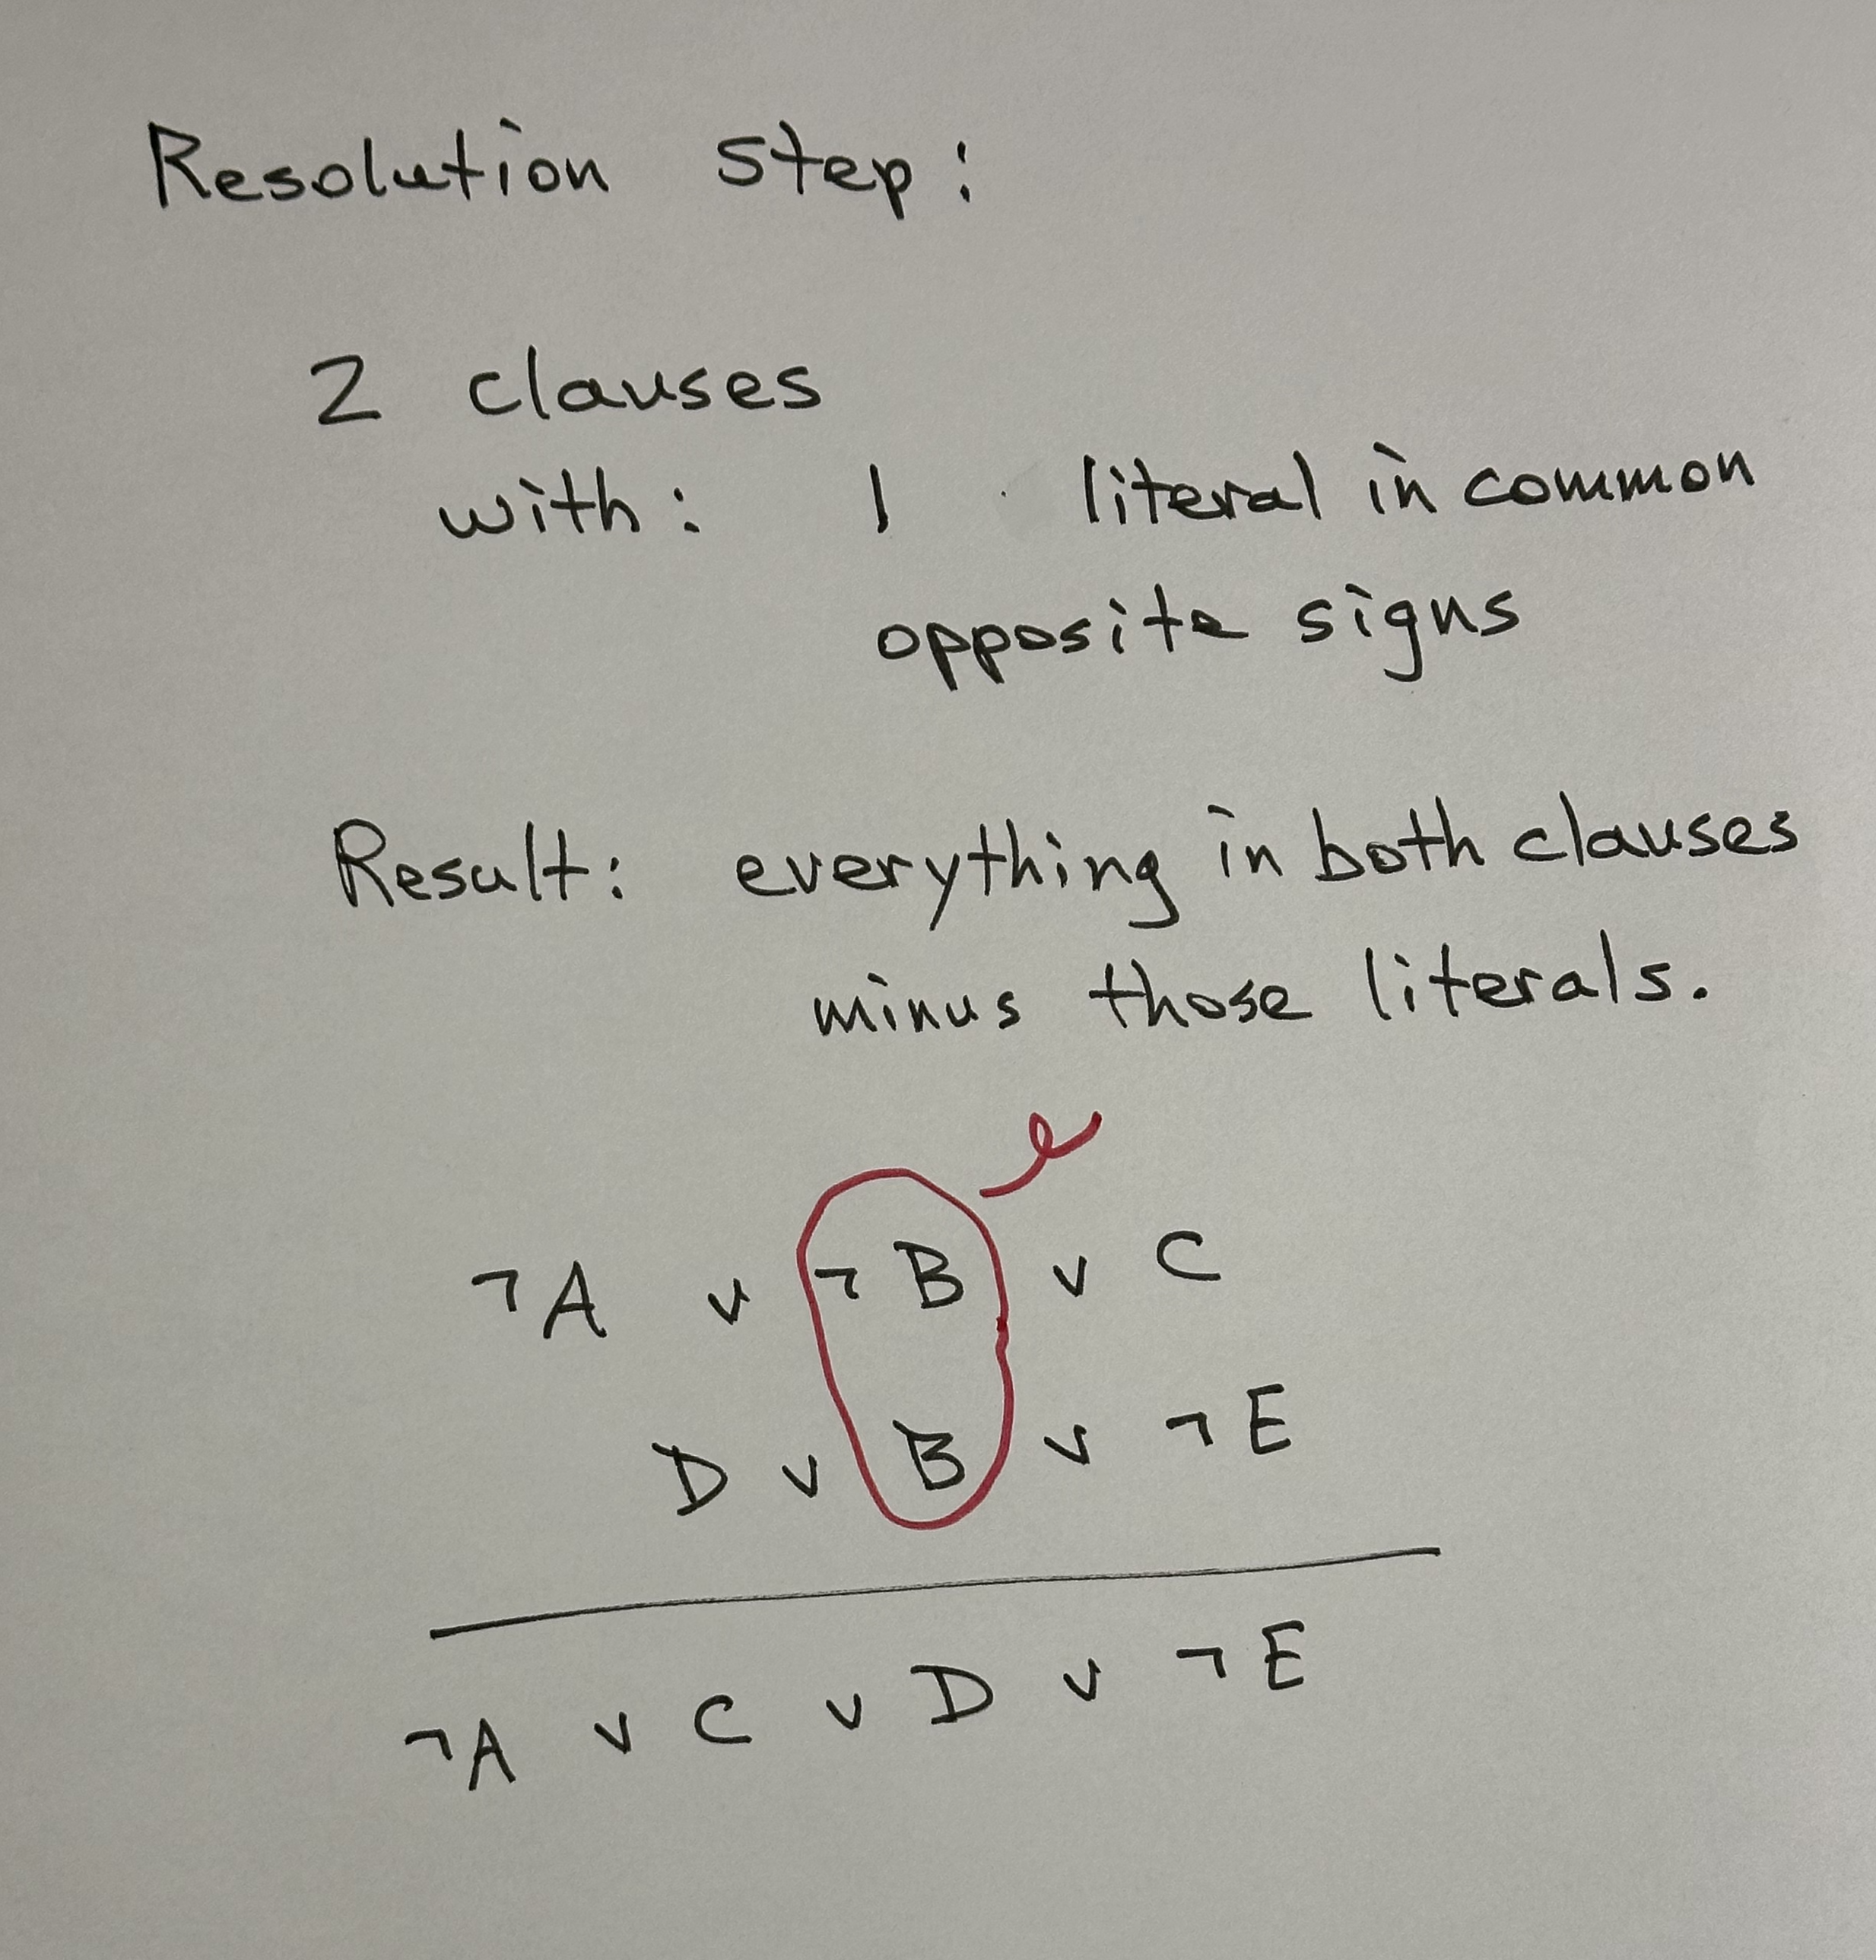 Resolution step:
2 clauses
with: 1 literal in common
opposite signs
Result: everything in both clauses
minus those literals.
¬A ∨ ¬B ∨ C
D ∨ B ∨ ¬E
¬A ∨ C ∨ D ∨ ¬E